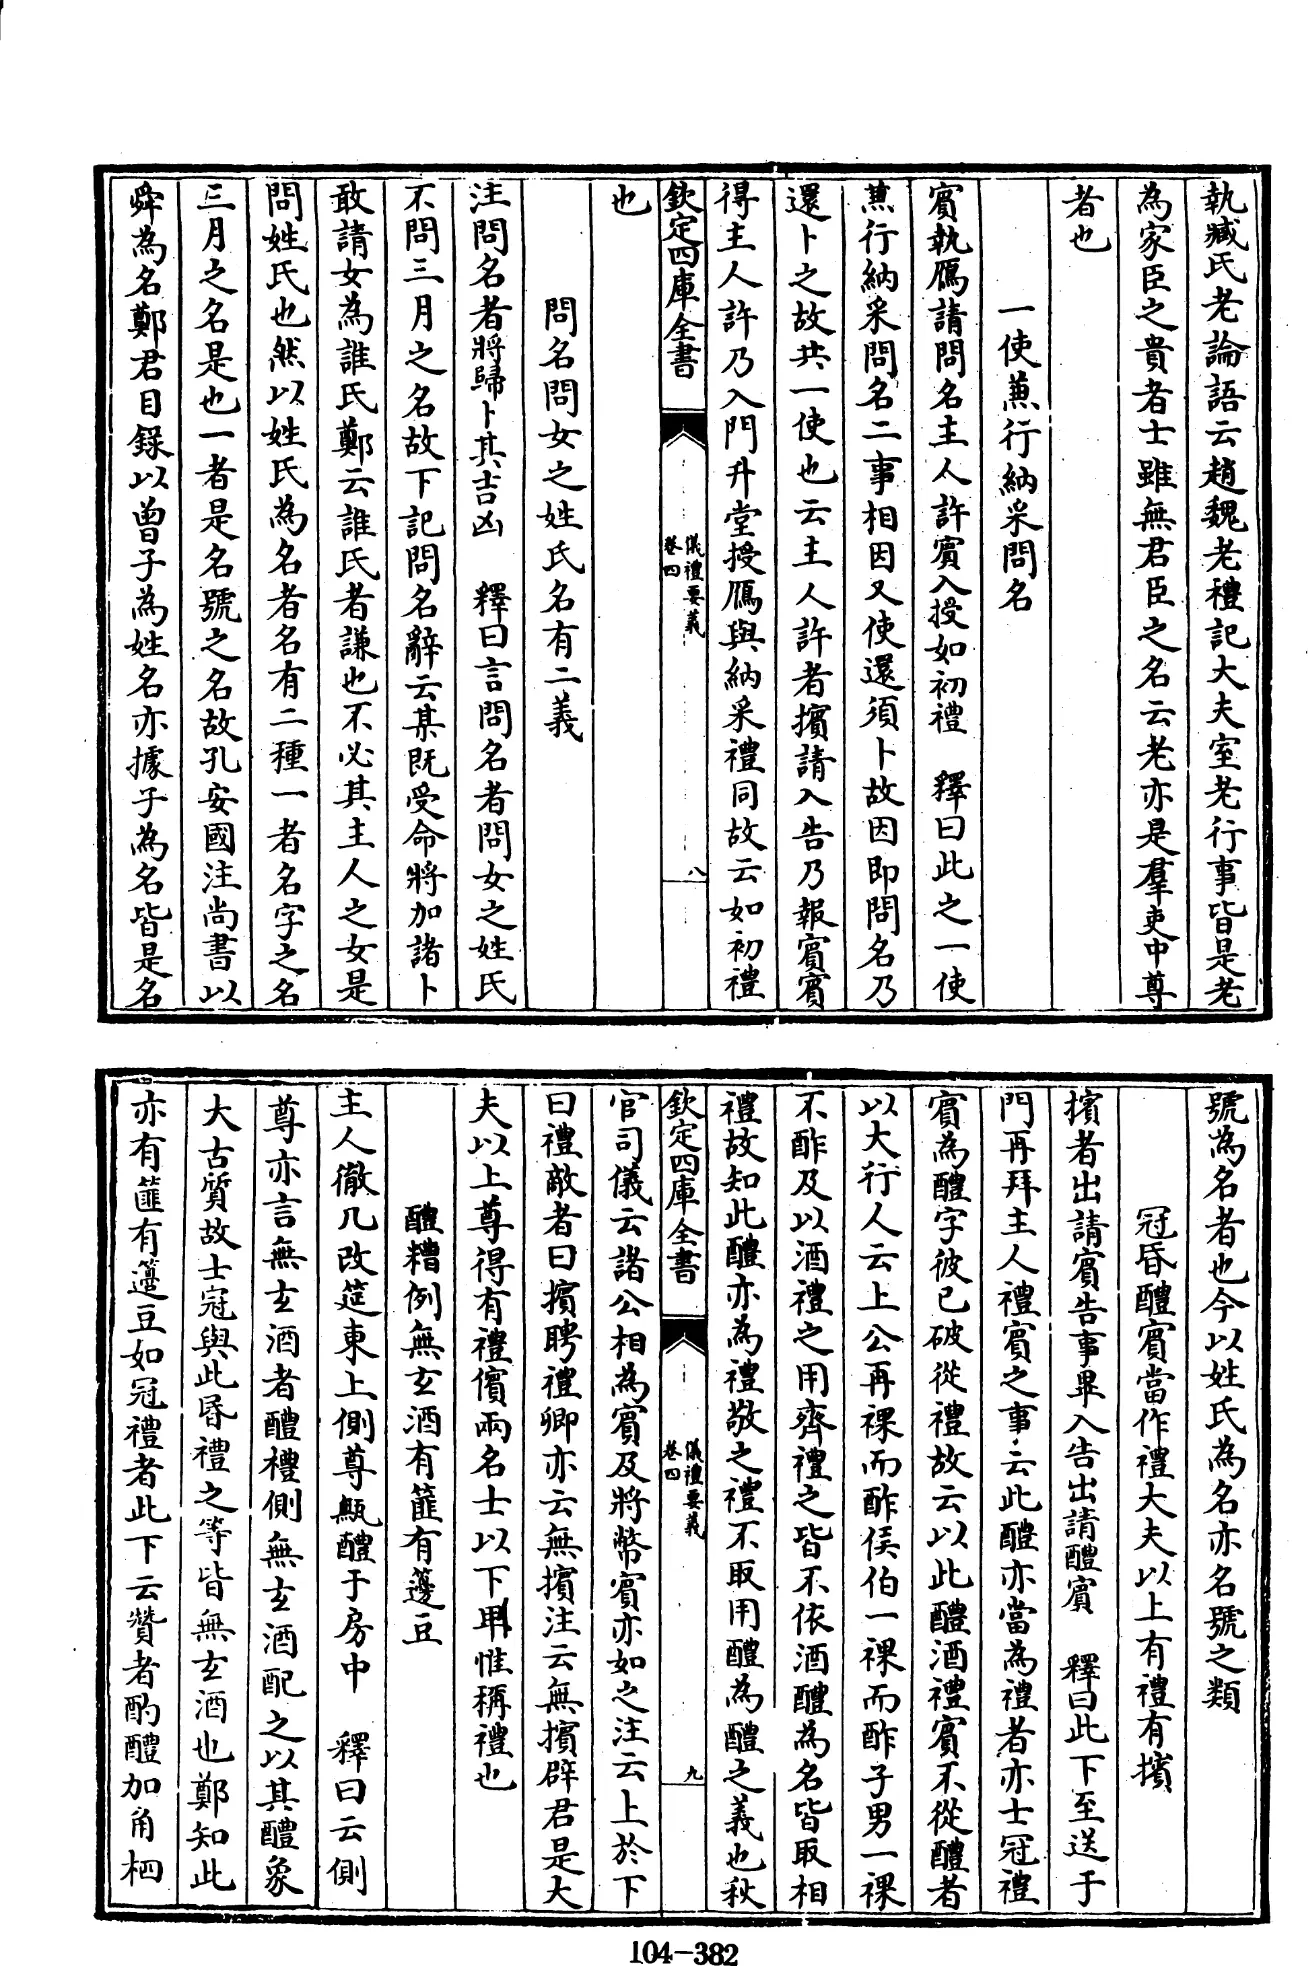 執臧氏老論語云趙魏老禮記大夫室老行事皆是老
為家臣之貴者士雖無君臣之名云老亦是羣吏中尊
者也
一使蕙行納采問名
賓執鴈請問名主人許賓入授如初禮　釋曰此之一使
兼行納采問名二事相因又使還須卜故因即問名乃
還卜之故共一使也云主人許者擯請入告乃報賓賓
得主人許乃入門升堂授鴈與納采禮同故云如初禮
欽定四庫全書
儀禮要義
卷四
八
也
問名問女之姓氏名有二義
注問名者將歸卜其吉凶　釋曰言問名者問女之姓氏
不問三月之名故下記問名辭云某既受命將加諸卜
敢請女為誰氏鄭云誰氏者謙也不必其主人之女是
問姓氏也然以姓氏為名者名有二種一者名字之名
三月之名是也一者是名號之名故孔安國注尚書以
舜為名鄭君目錄以曾子為姓名亦據子為名皆是名
號為名者也今以姓氏為名亦名號之類
冠昏醴賓當作禮大夫以上有禮有擯
擯者出請賓告事畢入告出請醴賓　釋曰此下至送于
門再拜主人禮賓之事云此醴亦當為禮者亦士冠禮
賓為醴字彼已破從禮故云以此醴酒禮賓不從醴者
以大行人云上公再祼而酢侯伯一祼而酢子男一祼
不酢及以酒禮之用齊禮之皆不依酒醴為名皆取相
禮故知此醴亦為禮敬之禮不取用醴為醴之義也秋
欽定四庫全書
儀禮要義
卷四
九
官司儀云諸公相為賓及將幣賓亦如之注云上於下
曰禮敵者曰擯聘禮卿亦云無擯注云無擯辟君是大
夫以上尊得有禮儐兩名士以下畢惟稱禮也
醴糟例無玄酒有篚有籩豆
主人徹几改筵東上側尊甒醴于房中　釋曰云側
尊亦言無玄酒者醴禮側無玄酒配之以其醴象
大古質故士冠與此昬禮之等皆無玄酒也鄭知此
亦有篚有籩豆如冠禮者此下云贊者酌醴加角柶
104-382